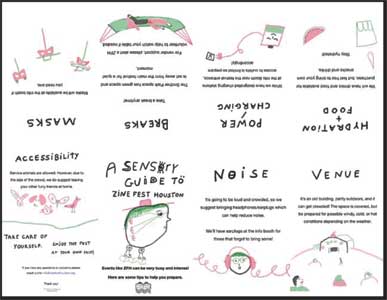 HYDRATION
+
FOOD
available for
purchase, but feel free to bring your own
snacks and drinks.
Stay hydrated!
POWER
CHARGING
charging stations
at the info
access to outlets
BREAKS
Take a break anytime!
Parking Space has green space and
is set away from the main festival for a quiet
moment.
For support
MASKS
Masks will be available at the info booth if
you need one.
ACCESSIBILITY
Service animals are allowed. However, due to
the size of the crowd, we do suggest leaving
your other furry friends at home.
TAKE CARE OF
YOURSELF.
ENJOY THE FEST
AT YOUR OWN PACE!
If you have any questions or concerns please
Thank you!
A SENSORY
GUIDE TO
ZINE FEST HOUSTON
Events like ZFH can be very busy and intense!
Here are some tips to help you prepare.
NOISE
It's going to be loud and crowded, so we
suggest bringing headphones/earplugs which
can help reduce noise.
We'll have earplugs at the info booth for
those that forgot to bring some!
VENUE
It's an old building, partly outdoors, and it
can get crowded! The space is covered, but
be prepared for possible windy, cold, or hot
conditions depending on the weather.